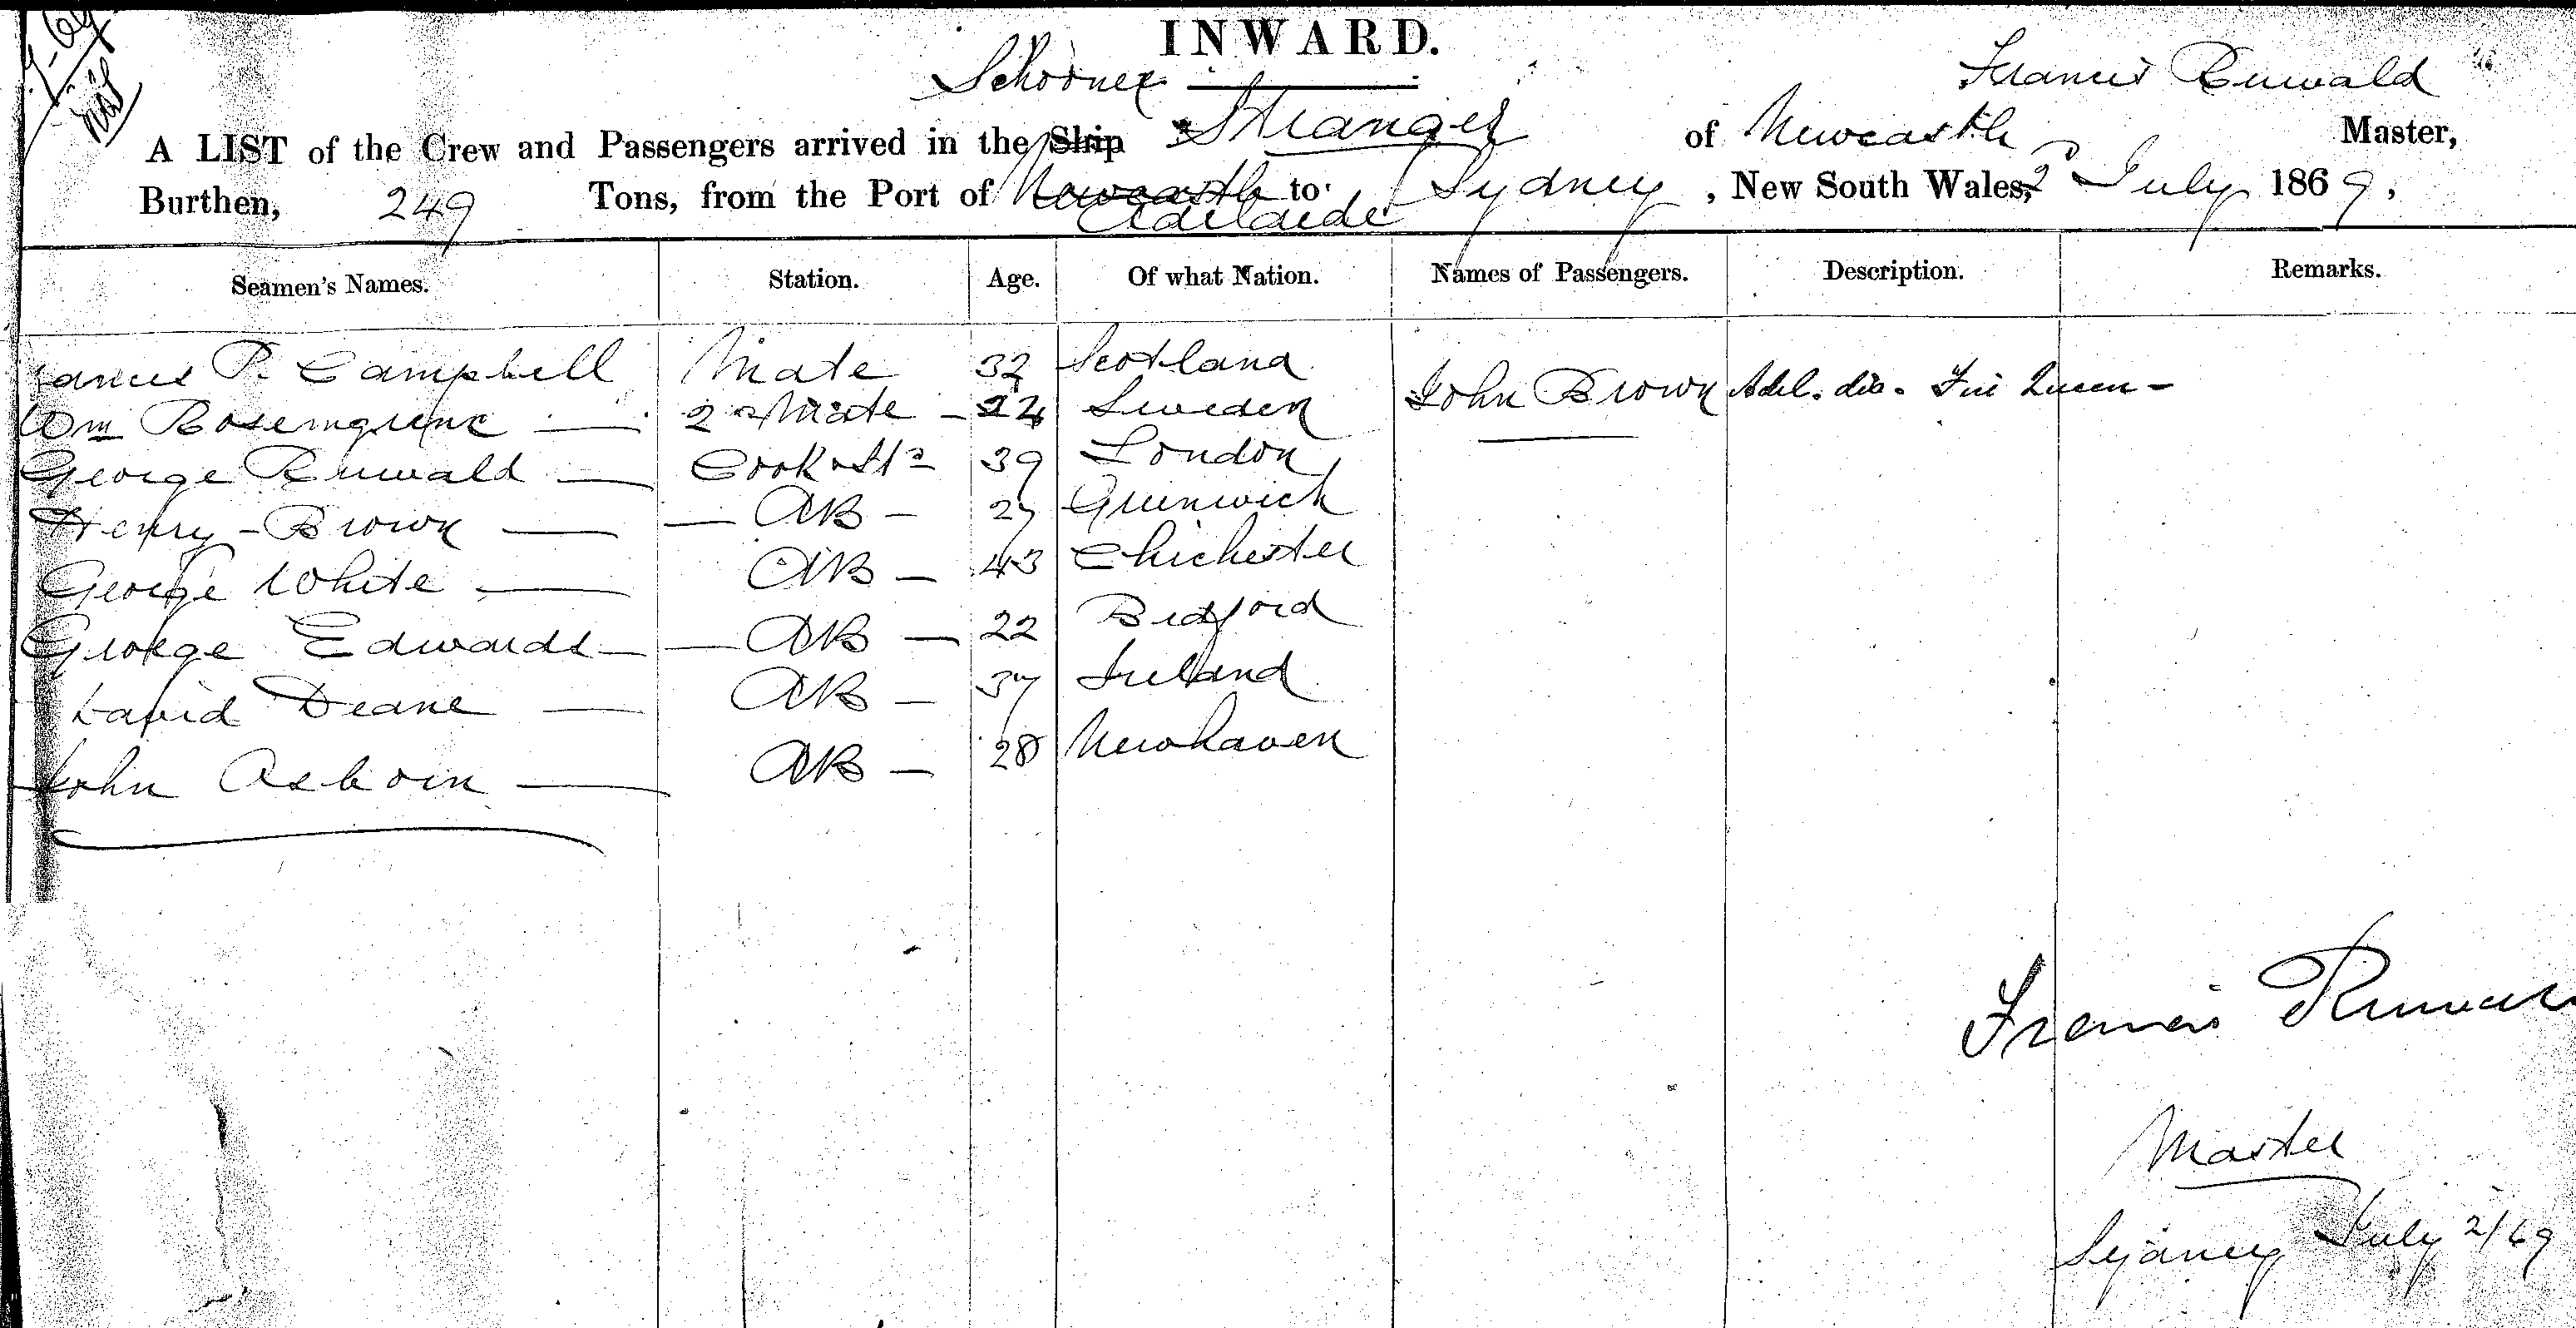 INWARD.
Schooner Francis Ruwald
A LIST of the Crew and Passengers arrived in the Ship Stranger of Newcastle Master,
Burthen, 249 Tons, from the Port of Newcastle to Sydney, New South Wales, 2 July 1869,
Adelaide
Seamen's Names. Station. Age. Of what Nation. Names of Passengers. Description. Remarks.
James P. Campbell Mate 32 Scotland
John Brown
Wm 2nd Mate 24 Sweden
George Ruwald Cook & Std 39 London
Henry Brown AB 27 Greenwich
George White AB 43 Chichester
George Edwards AB 22 Bedford
David Deane AB 37 Ireland
John Asborn AB 28 Newhaven
Francis
Master
Sydney July 2/69